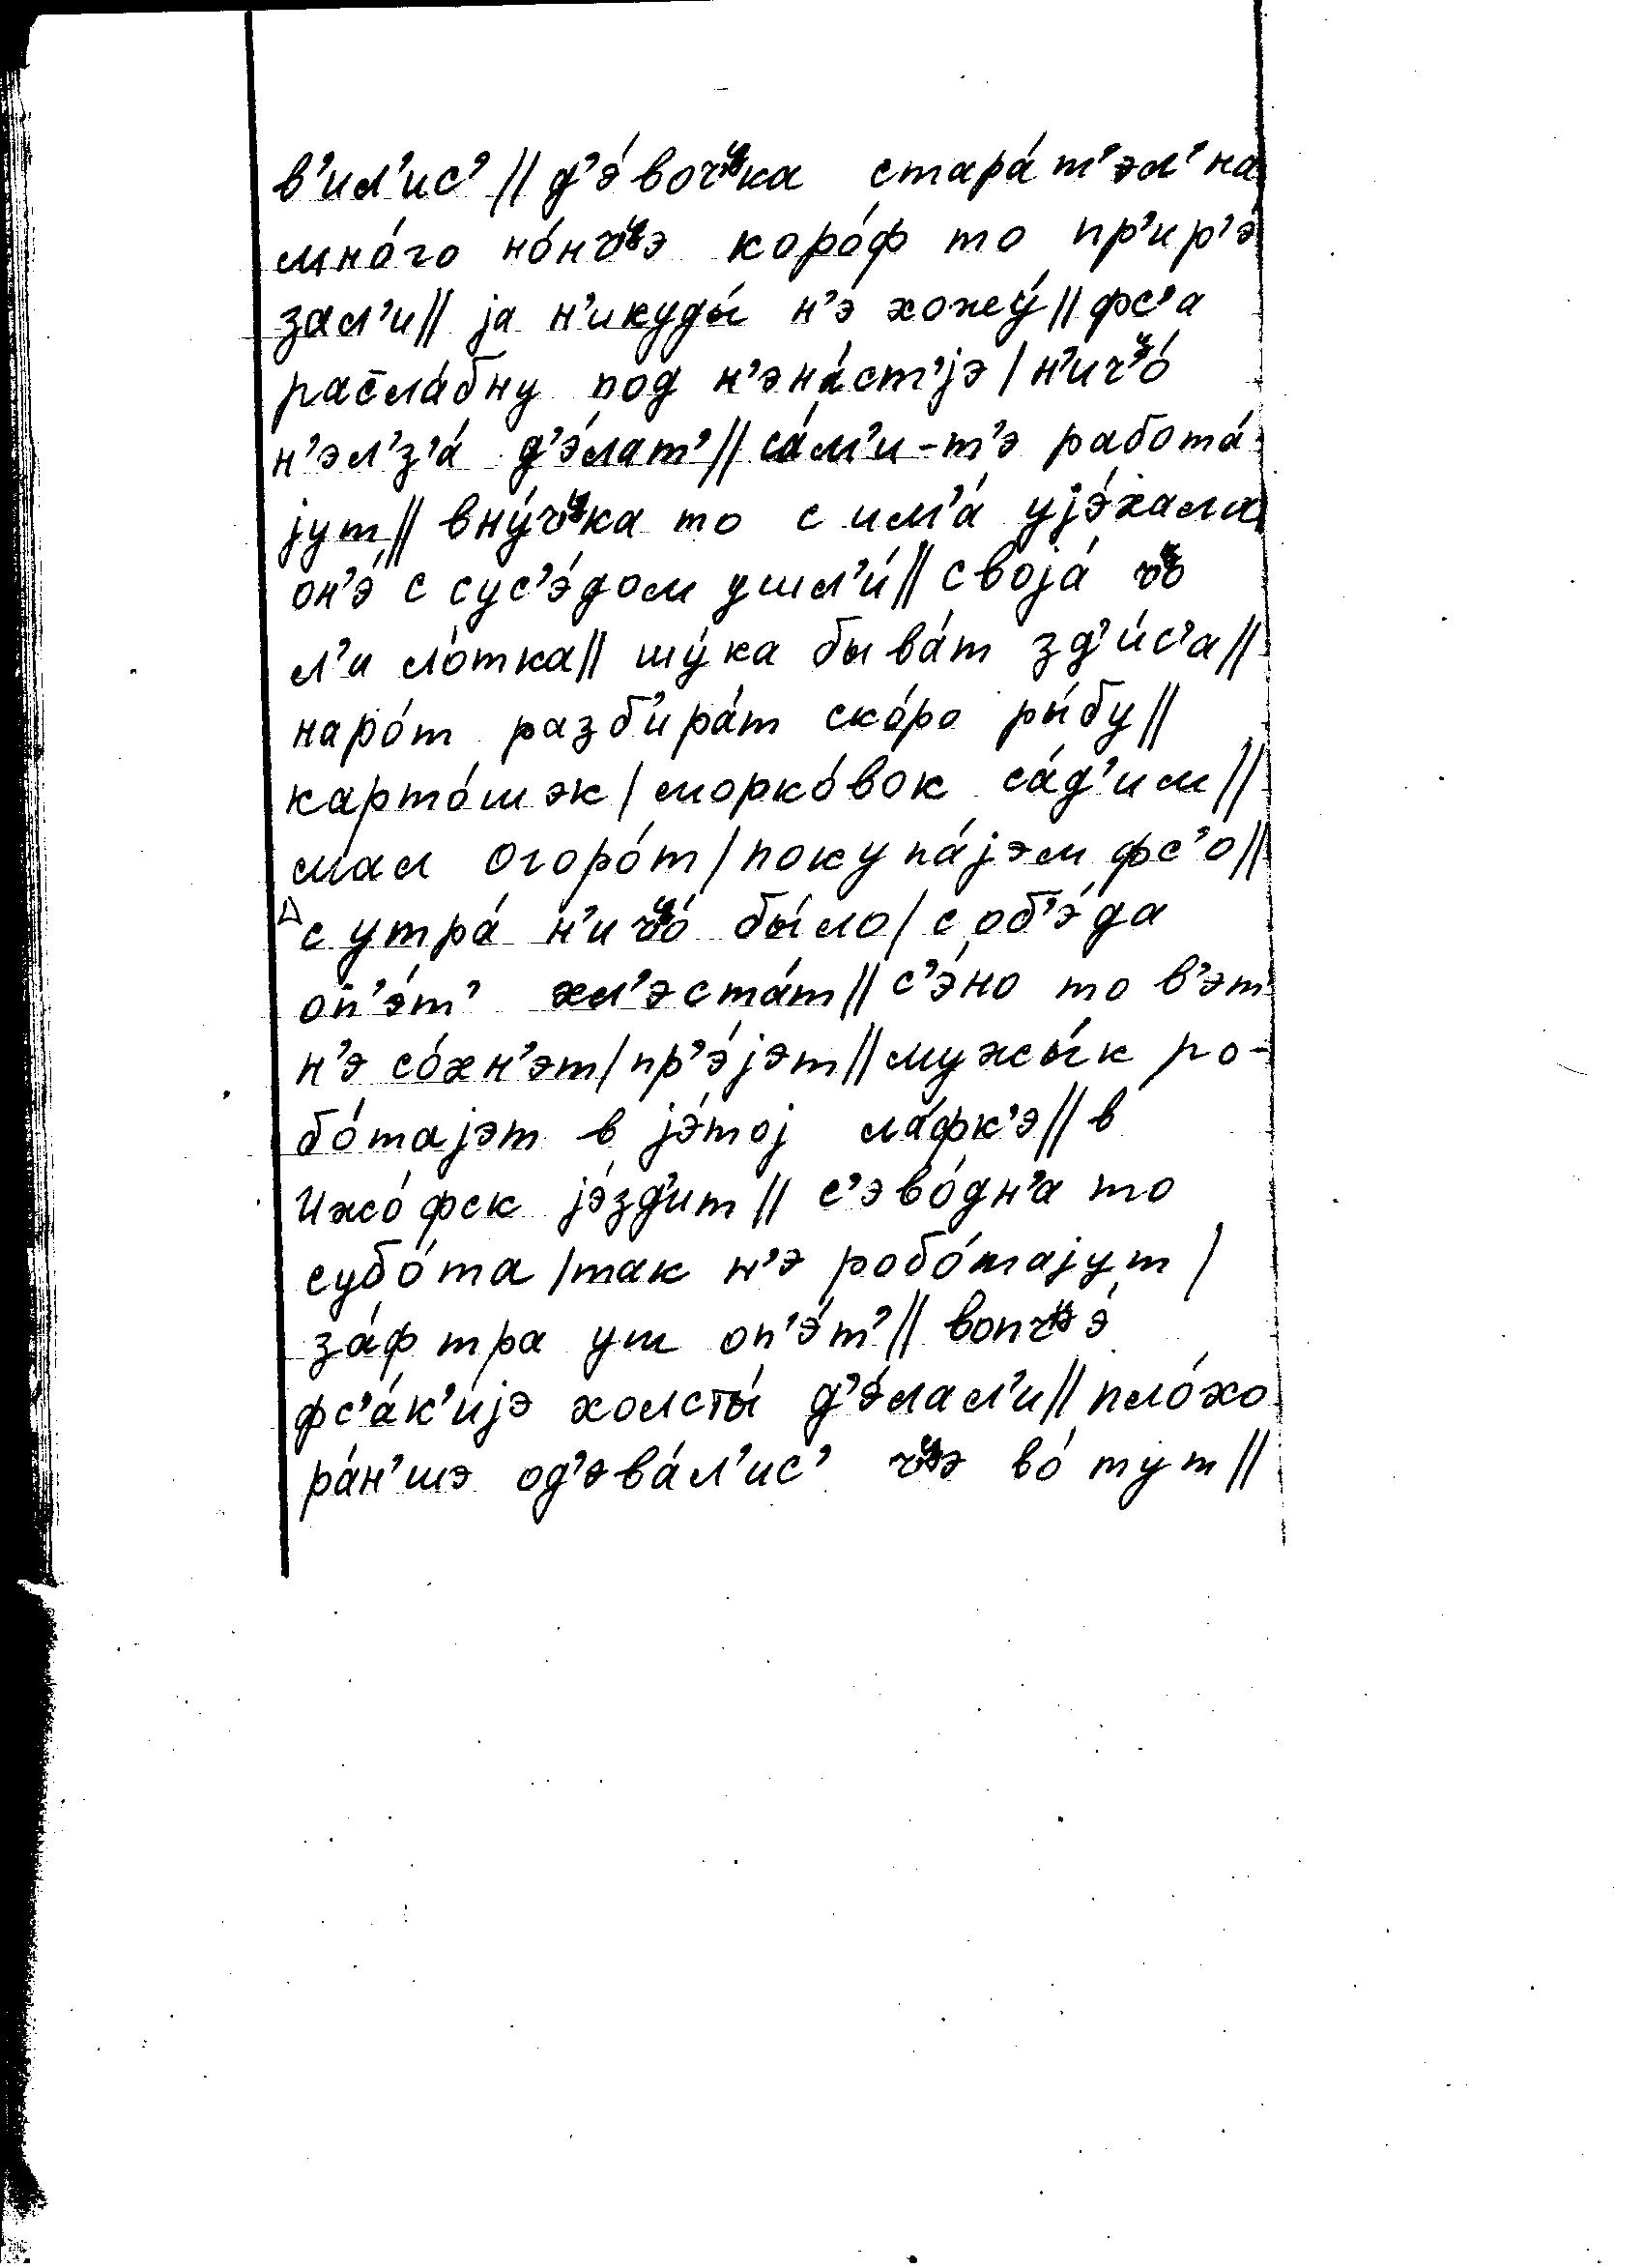 в’ил’ис’ // д’э́воч’ᶣка стара́т’эл’на
мно́го но́нч’ᶣэ коро́ф то пр’ир’э́
зал’и // jа н’икуды́ н’э хожу́ // фс’а
расла́бну под н’эна́ст’jэ / н’ич’ᶣо́
н’эл’з’а́ д’э́лат’ // са́м’и-т’э работа́
jут // вну́ч’ᶣка то с им’а́ уjэ́хала
он’э́ с сус’э́дом ушл’и́ // своjа́ ч’ᶣо
л’и ло́тка // шу́ка быва́т зд’и́с’а //
наро́т разб’ира́т ско́ро ры́бу //
карто́шэк / морко́вок са́д’им //
мал огоро́т / покупа́jэм фс’о //
с утра́ н’ич’ᶣо́ бы́ло / с об’э́да
оп’э́т’ хл’эста́т // с’э́но то в’эт
н’э со́хн’эт / пр’э́jэт // мужы́к ро-
бо́таjэт в jэ́тоj ла́фк’э // в
Ижо́фск jэ́зд’ит // с’эво́дн’а то
субо́та / так н’э робо́таjут /
за́фтра уш оп’э́т’ // вопч’ᶣэ́
фс’а́к’иjэ холсты́ д’э́лал’и // пло́хо
ра́н’шэ од’эва́л’ис’ ч’ᶣэ во́ тут //